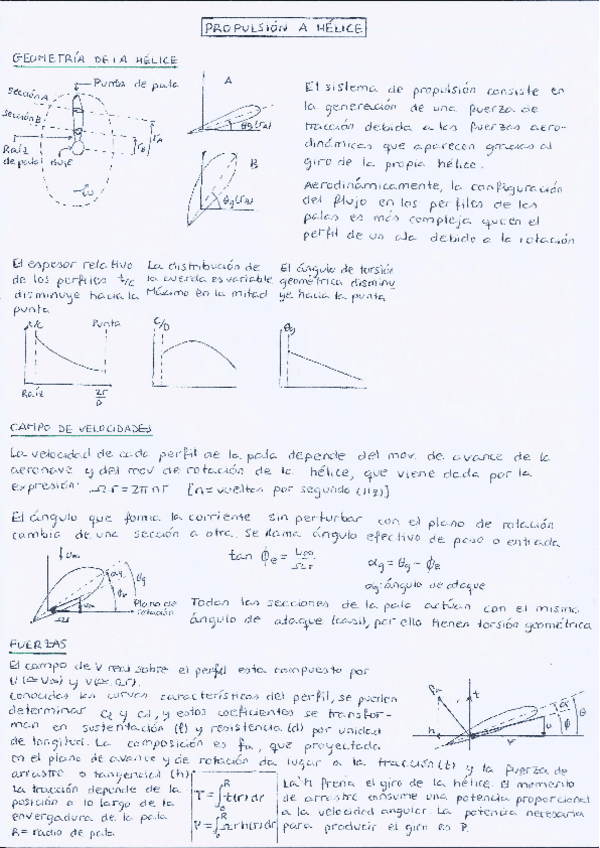 PROPULSIÓN A HÉLICE
GEOMETRÍA DE LA HÉLICE
Punta de pala
sección A
sección B
Raíz
de pala
Buje
Ω
r_A
r_B
A
θg(r_A)
B
θg(r_B)
El sistema de propulsión consiste en
la generación de una fuerza de
tracción debida a las fuerzas aero-
dinámicas que aparecen gracias al
giro de la propia hélice.
Aerodinámicamente, la configuración
del flujo en los perfiles de las
palas es más compleja que en el
perfil de un ala debido a la rotación
El espesor relativo
de los perfiles t/c
disminuye hacia la
punta
La distribución de
la cuerda es variable
Máximo en la mitad
El ángulo de torsión
geométrica disminu
ye hacia la punta
t/c
Punta
Raíz
2r
D
C/D
θg
CAMPO DE VELOCIDADES
La velocidad de cada perfil de la pala depende del mov. de avance de la
aeronave y del mov de rotación de la hélice, que viene dada por la
expresión: Ωr = 2πnr [n = vueltas por segundo (Hz)]
El ángulo que forma la corriente sin perturbar con el plano de rotación
cambia de una sección a otra. Se llama ángulo efectivo de paso o entrada
tan ϕe = U∞/Ωr
αg = θg - ϕe
αg: ángulo de ataque
U∞
αg
θg
Plano de
rotación
Ωr
Todas las secciones de la pala actúan con el mismo
ángulo de ataque (casi), por ello tienen torsión geométrica
FUERZAS
El campo de V real sobre el perfil esta compuesto por
U (≈U∞) y V(≈Ωr).
Conocidas las curvas características del perfil, se pueden
determinar Cl y Cd, y estos coeficientes se transfor-
man en sustentación (l) y resistencia (d) por unidad
de longitud. La composición es fa, que proyectada
en el plano de avance y de rotación da lugar a la tracción (t) y la fuerza de
arrastre o tangencial (h)
fa
t
h
v
u
α
ϕ
θ
La tracción depende de la
posición a lo largo de la
envergadura de la pala
R = radio de pala
T = ∫₀ᴿ t(r) dr
P = ∫₀ᴿ Ωr h(r) dr
La h frena el giro de la hélice. El momento
de arrastre consume una potencia proporcional
a la velocidad angular. La potencia necesaria
para producir el giro es P.